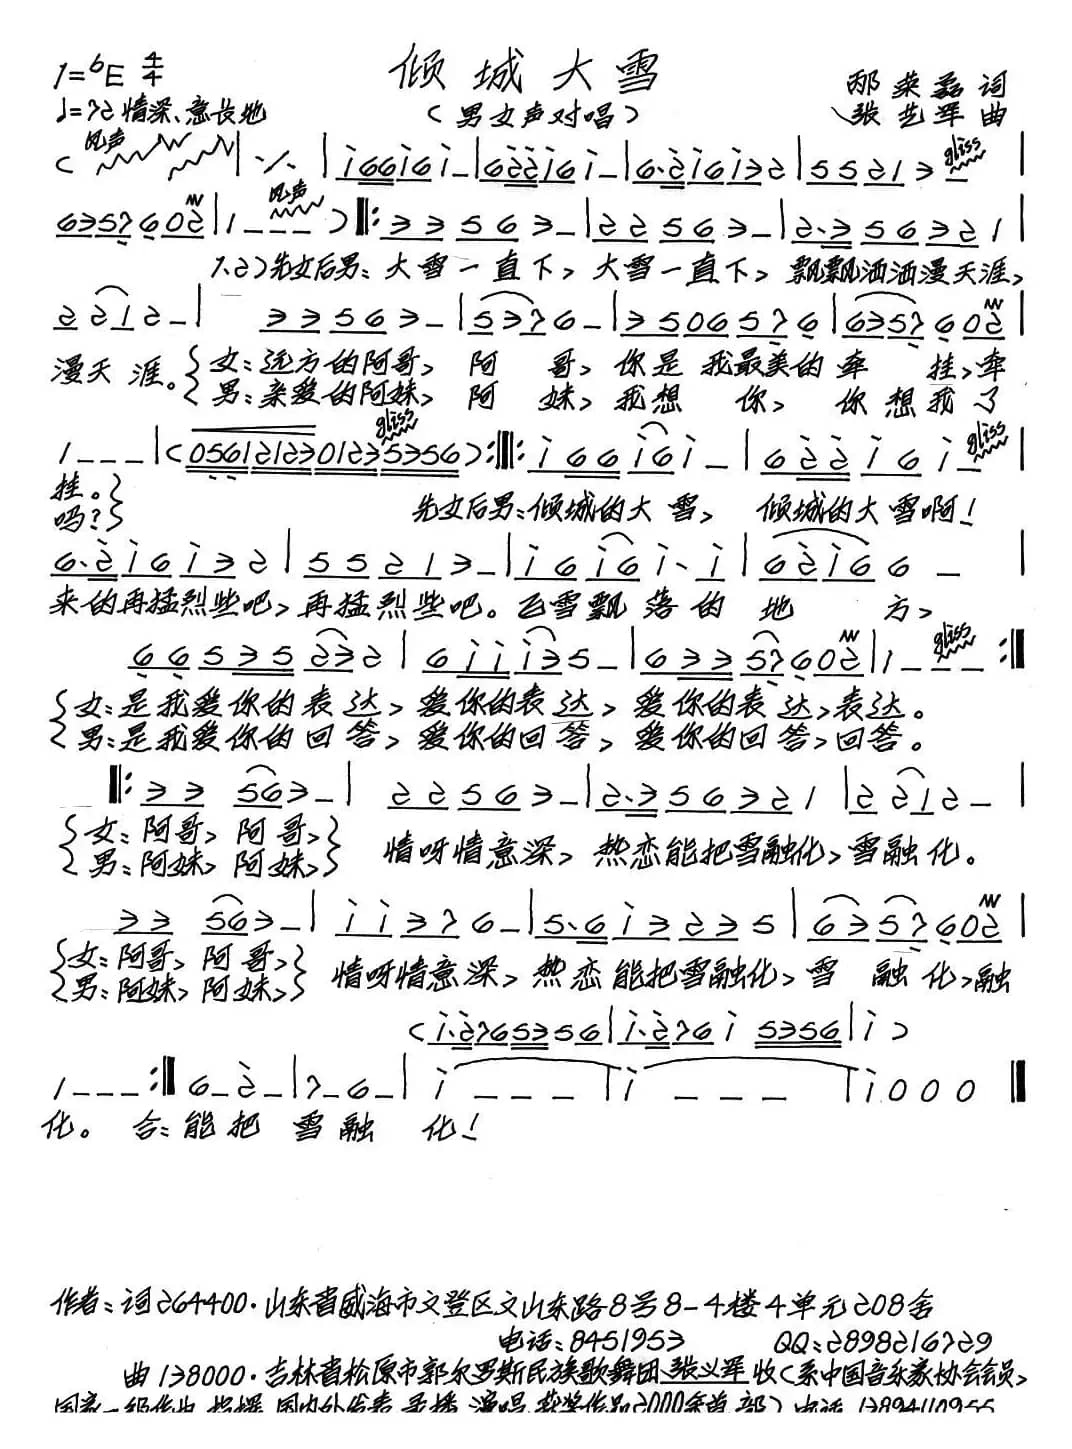 1=♭E 4/4
倾城大雪
邢荣磊 词
♩=72 情深、意长地
（男女声对唱）
张艺军 曲
风声 gliss
( | ·/. | i66i6i – | 622i6i – | 6·2i6i32 | 55213 – |
风声
6357602 | 1 – – – ) ‖: 33563 – | 22563 – | 2·356321 |
1.2〉先女后男：大雪一直下，大雪一直下，飘飘洒洒漫天涯，
2212 – | 33563 – | 5376 – | 3506576 | 6357602 |
漫天涯。{女：远方的阿哥，阿哥，你是我最美的牵挂，牵
男：亲爱的阿妹，阿妹，我想你，你想我了
gliss gliss
1 – – – | (0561212301235356) :‖: i66i6i – | 622i6i – |
挂。}
吗？}
先女后男：倾城的大雪，倾城的大雪啊！
6·2i6i32 | 55213 – | i6i6i·i | 62i66 – |
来的再猛烈些吧，再猛烈些吧。飞雪飘落的地方，
gliss
66535232 | 6iii35 – | 63357602 | 1 – – – :‖
{女：是我爱你的表达，爱你的表达，爱你的表达，表达。
男：是我爱你的回答，爱你的回答，爱你的回答，回答。
‖: 33563 – | 22563 – | 2·356321 | 2212 – |
{女：阿哥，阿哥，}
男：阿妹，阿妹，}
情呀情意深，热恋能把雪融化，雪融化。
33563 – | ii376 – | 5·6i3235 | 6357602 |
{女：阿哥，阿哥，}
男：阿妹，阿妹，}
情呀情意深，热恋能把雪融化，雪融化，融
(i·2765356 | i·276i5356 | i )
1 – – – :‖ 6 – 2 – | 7 – 6 – | i – – – | i – – – | i000 ‖
化。合：能把雪融化！
作者：词264400·山东省威海市文登区文山东路8号8-4楼4单元208舍
电话：8451953 QQ：2898216729
曲138000·吉林省松原市郭尔罗斯民族歌舞团张义军收（系中国音乐家协会会员，